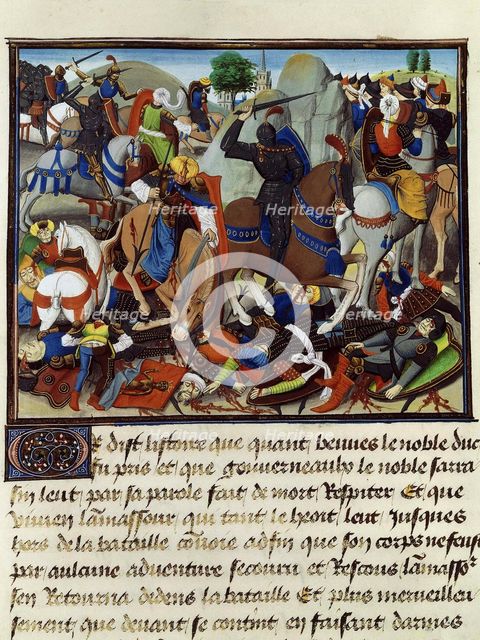 Or dist listoire que quant beuves le noble duc
fu pris et que gouverneaulx le noble sarra
sin leut par sa parole fait de mort Respiter Et que
vivien lamassour qui tant le heoit leut Jusques
hors de la bataille adfin que son corps ne feust
par aulcune adventure secouru et Rescous lamassor
sen Retourna dedens la bataille Et plus merveilleu
sement que devant se contint en faisant darmes
Heritage
Heritage
Heritage
Heritage
Heritage
Heritage
Heritage